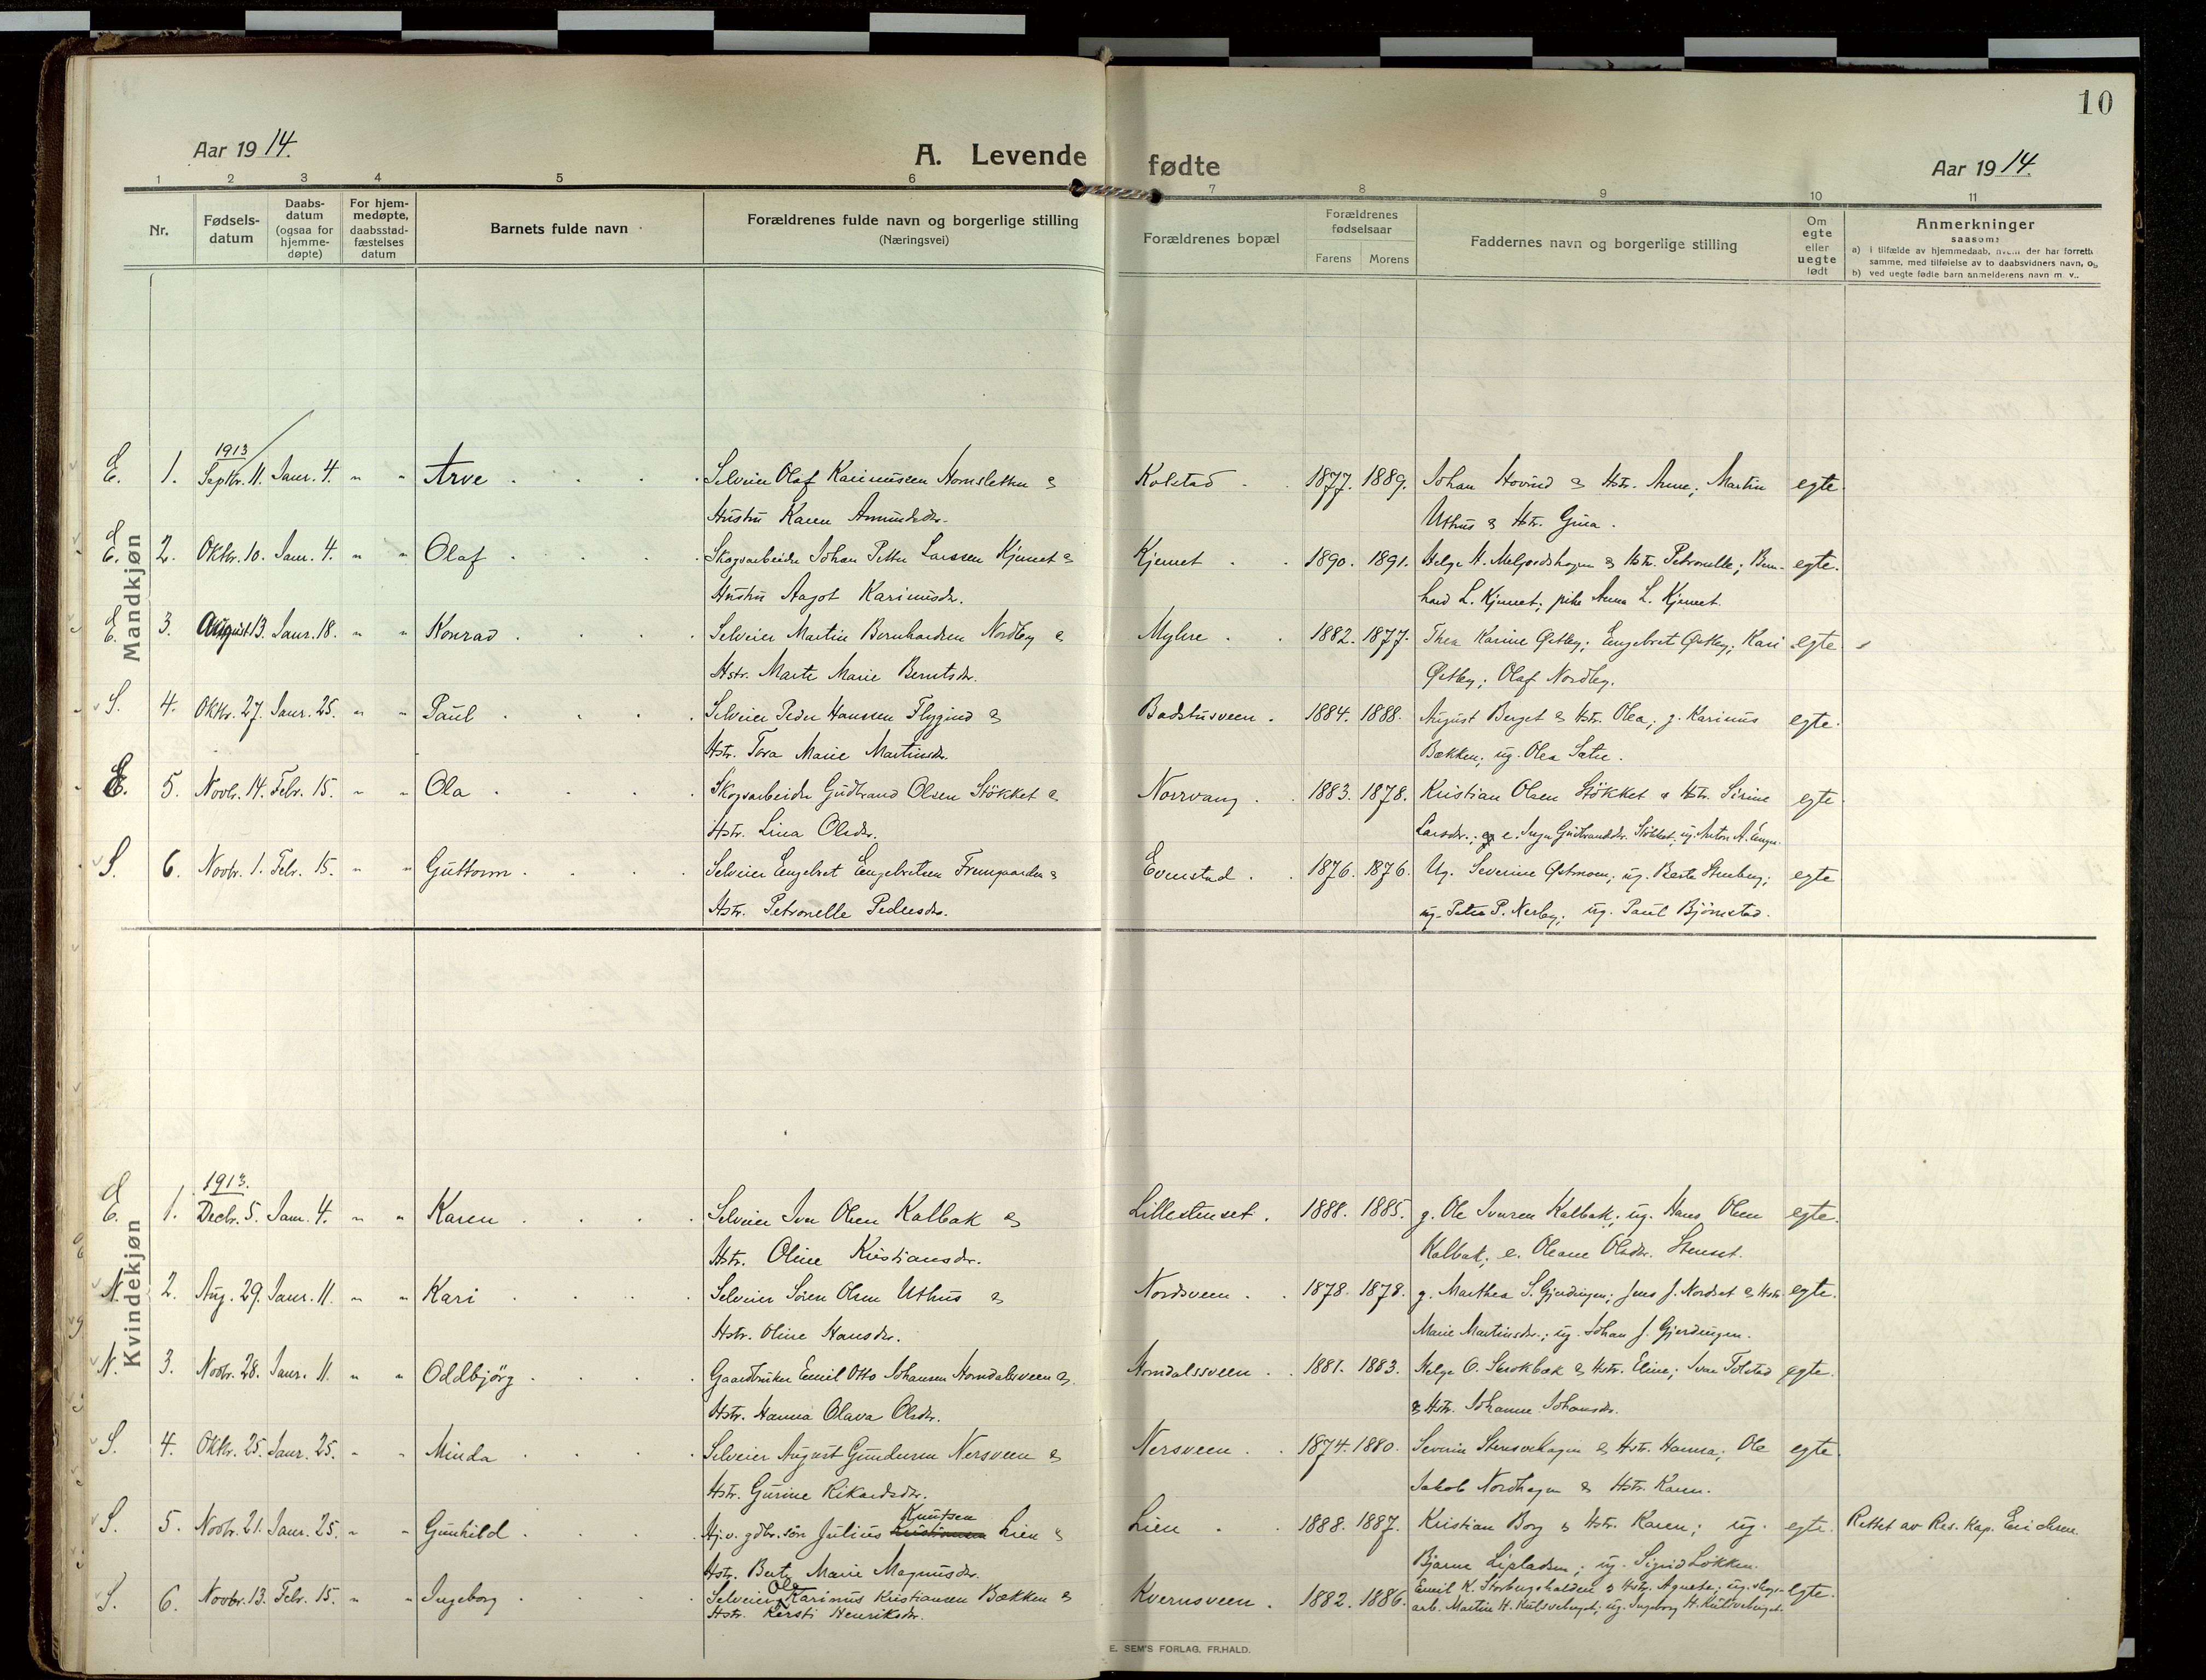 10
Aar 1914.
A. Levende fødte
Aar 1914.
1 2 3 4 5 6 7 8 9 10 11
Nr.
Fødsels-
datum
Daabs-
datum
(ogsaa for
hjemme-
døpte)
For hjem-
medøpte,
daabsstad-
fæstelses
datum
Barnets fulde navn
Forældrenes fulde navn og borgerlige stilling
(Næringsvei)
Forældrenes bopæl
Forældrenes
fødselsaar
Farens Morens
Faddernes navn og borgerlige stilling
Om
egte
eller
uegte
født
Anmerkninger
saasom:
a) i tilfælde av hjemmedaab, hvem der har forrett
samme, med tilføielse av to daabsvidners navn, og
b) ved uegte fødte barn anmelderens navn m. v..
Mandkjøn
1913
E. 1. Septbr. 11. Janr. 4. " " Arve . Selveier Olaf Karinusen Hornsletten & Kolstad . 1877. 1889. Johan Hovind & Hstr. Anne; Martin egte.
Hustru Karen Amundsdr. Uthus & Hstr. Gina.
E. 2. Oktbr. 10. Janr. 4. " " Olaf . Skogsarbeider Johan Petter Larssen Kjemet & Kjemet . 1890. 1891. Helge H. Melgardshagen & Hstr. Petronelle; Bern- egte.
Hustru Aagot Karinusdr. hard L. Kjemet; pike Anna L. Kjemet.
E. 3. August 13. Janr. 18. " " Konrad . Selveier Martin Bernhardsen Nordby & Myhre . 1882. 1877. Thea Karine Østby; Engebret Østby; Kari egte
Hstr. Marte Marie Berntsdr. Østby; Olaf Nordby.
S. 4. Oktbr. 27. Janr. 25. " " Paul . Selveier Peder Hanssen Flygind & Badstusveen . 1884. 1888. August Berget & Hstr. Olea; g. Karinus egte.
Hstr. Tora Marie Martinsdr. Bækken; ug. Olea Sætre.
E. 5. Novbr. 14. Febr. 15. " " Ola . Skogsarbeider Gudbrand Olsen Støkket & Norrvang . 1883. 1878. Kristian Olsen Støkket & Hstr. Sirine egte
Hstr. Lina Olsdr. Larsdr.; e. Inger Gudbrandsdr. Støkket; ug. Anton A. Enger.
S. 6. Novbr. 1. Febr. 15. " " Guttorm . Selveier Engebret Engebretsen Fremgaarden & Evenstad . 1876. 1876. Ug. Severine Østmoen; ug. Berte Stenberg; egte
Hstr. Petronelle Pedersdr. ug. Petra P. Nerby; ug. Paul Bjørnstad.
Kvindekjøn
1913.
E. 1. Decbr. 5. Janr. 4. " " Karen . Selveier Iver Olsen Kalbak & Lillestenset . 1888. 1885. g. Ole Iversen Kalbak; ug. Hans Olsen egte.
Hstr. Oline Kristiansdr. Kalbak; e. Oleane Olsdr. Stenset.
N. 2. Aug. 29. Janr. 11. " " Kari . Selveier Søren Olsen Uthus & Nordsveen . 1878. 1878. g. Marthea S. Gjerdingen; Jens J. Nordset & Hstr. egte.
Hstr. Oline Hansdr. Marie Martinsdr.; ug. Johan J. Gjerdingen.
N. 3. Novbr. 28. Janr. 11. " " Oddbjörg . Gaardbruker Emil Otto Johansen Horndalsveen & Horndalssveen . 1881. 1883. Helge O. Skrokbæk & Hstr. Eline; Iver Tolstad egte.
Hstr. Hanna Olava Olsdr. & Hstr. Johanne Johansdr.
S. 4. Oktbr. 25. Janr. 25. " " Minda . Selveier August Gundersen Nersveen & Nersveen . 1874. 1880. Severin Stensvehagen & Hstr. Hanna; Ole egte.
Hstr. Gurine Rikardsdr. Jakob Nordhagen & Hstr. Karen.
Knutsen
S. 5. Novbr. 21. Janr. 25. " " Gunhild . Hj.v. gdbr. søn Julius Kristiansen Lien & Lien . 1888. 1887. Kristian Borg & Hstr. Karen; ug. egte. Rettet av Res. Kap. Erichsen.
Hstr. Berte Marie Magnusdr. Bjarne Lisladsen; ug. Sigrid Løkken.
Ole
S. 6. Novbr. 13. Febr. 15. " " Ingeborg . Selveier Karinus Kristiansen Bækken & Kvernsveen . 1882. 1886. Emil K. Storbergshalden & Hstr. Agnete; ug. skogs- egte.
Hstr. Kersti Henriksdr. arb. Martin H. Kulsveberget; ug. Ingeborg H. Kulsveberget.
E. SEM'S FORLAG, FR.HALD.